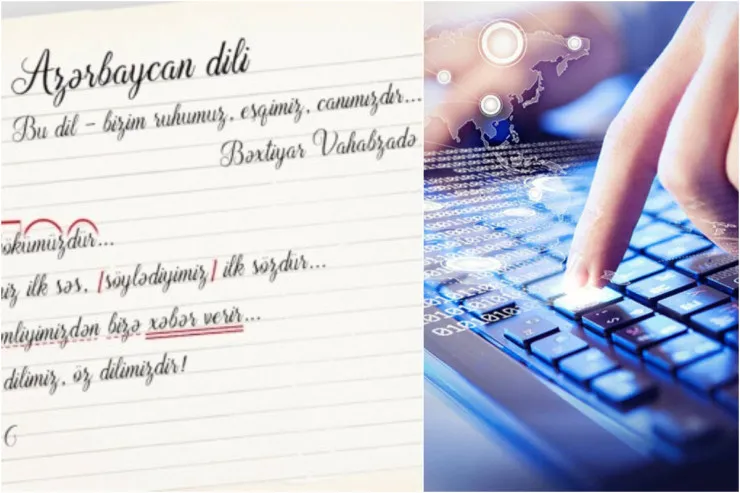 Azərbaycan dili
Bu dil – bizim ruhumuz, eşqimiz, canımızdır...
Bəxtiyar Vahabzadə
ökümüzdür...
iz ilk səs, söylədiyimiz ilk sözdür...
mliyimizdən bizə xəbər verir...
dilimiz, öz dilimizdir!